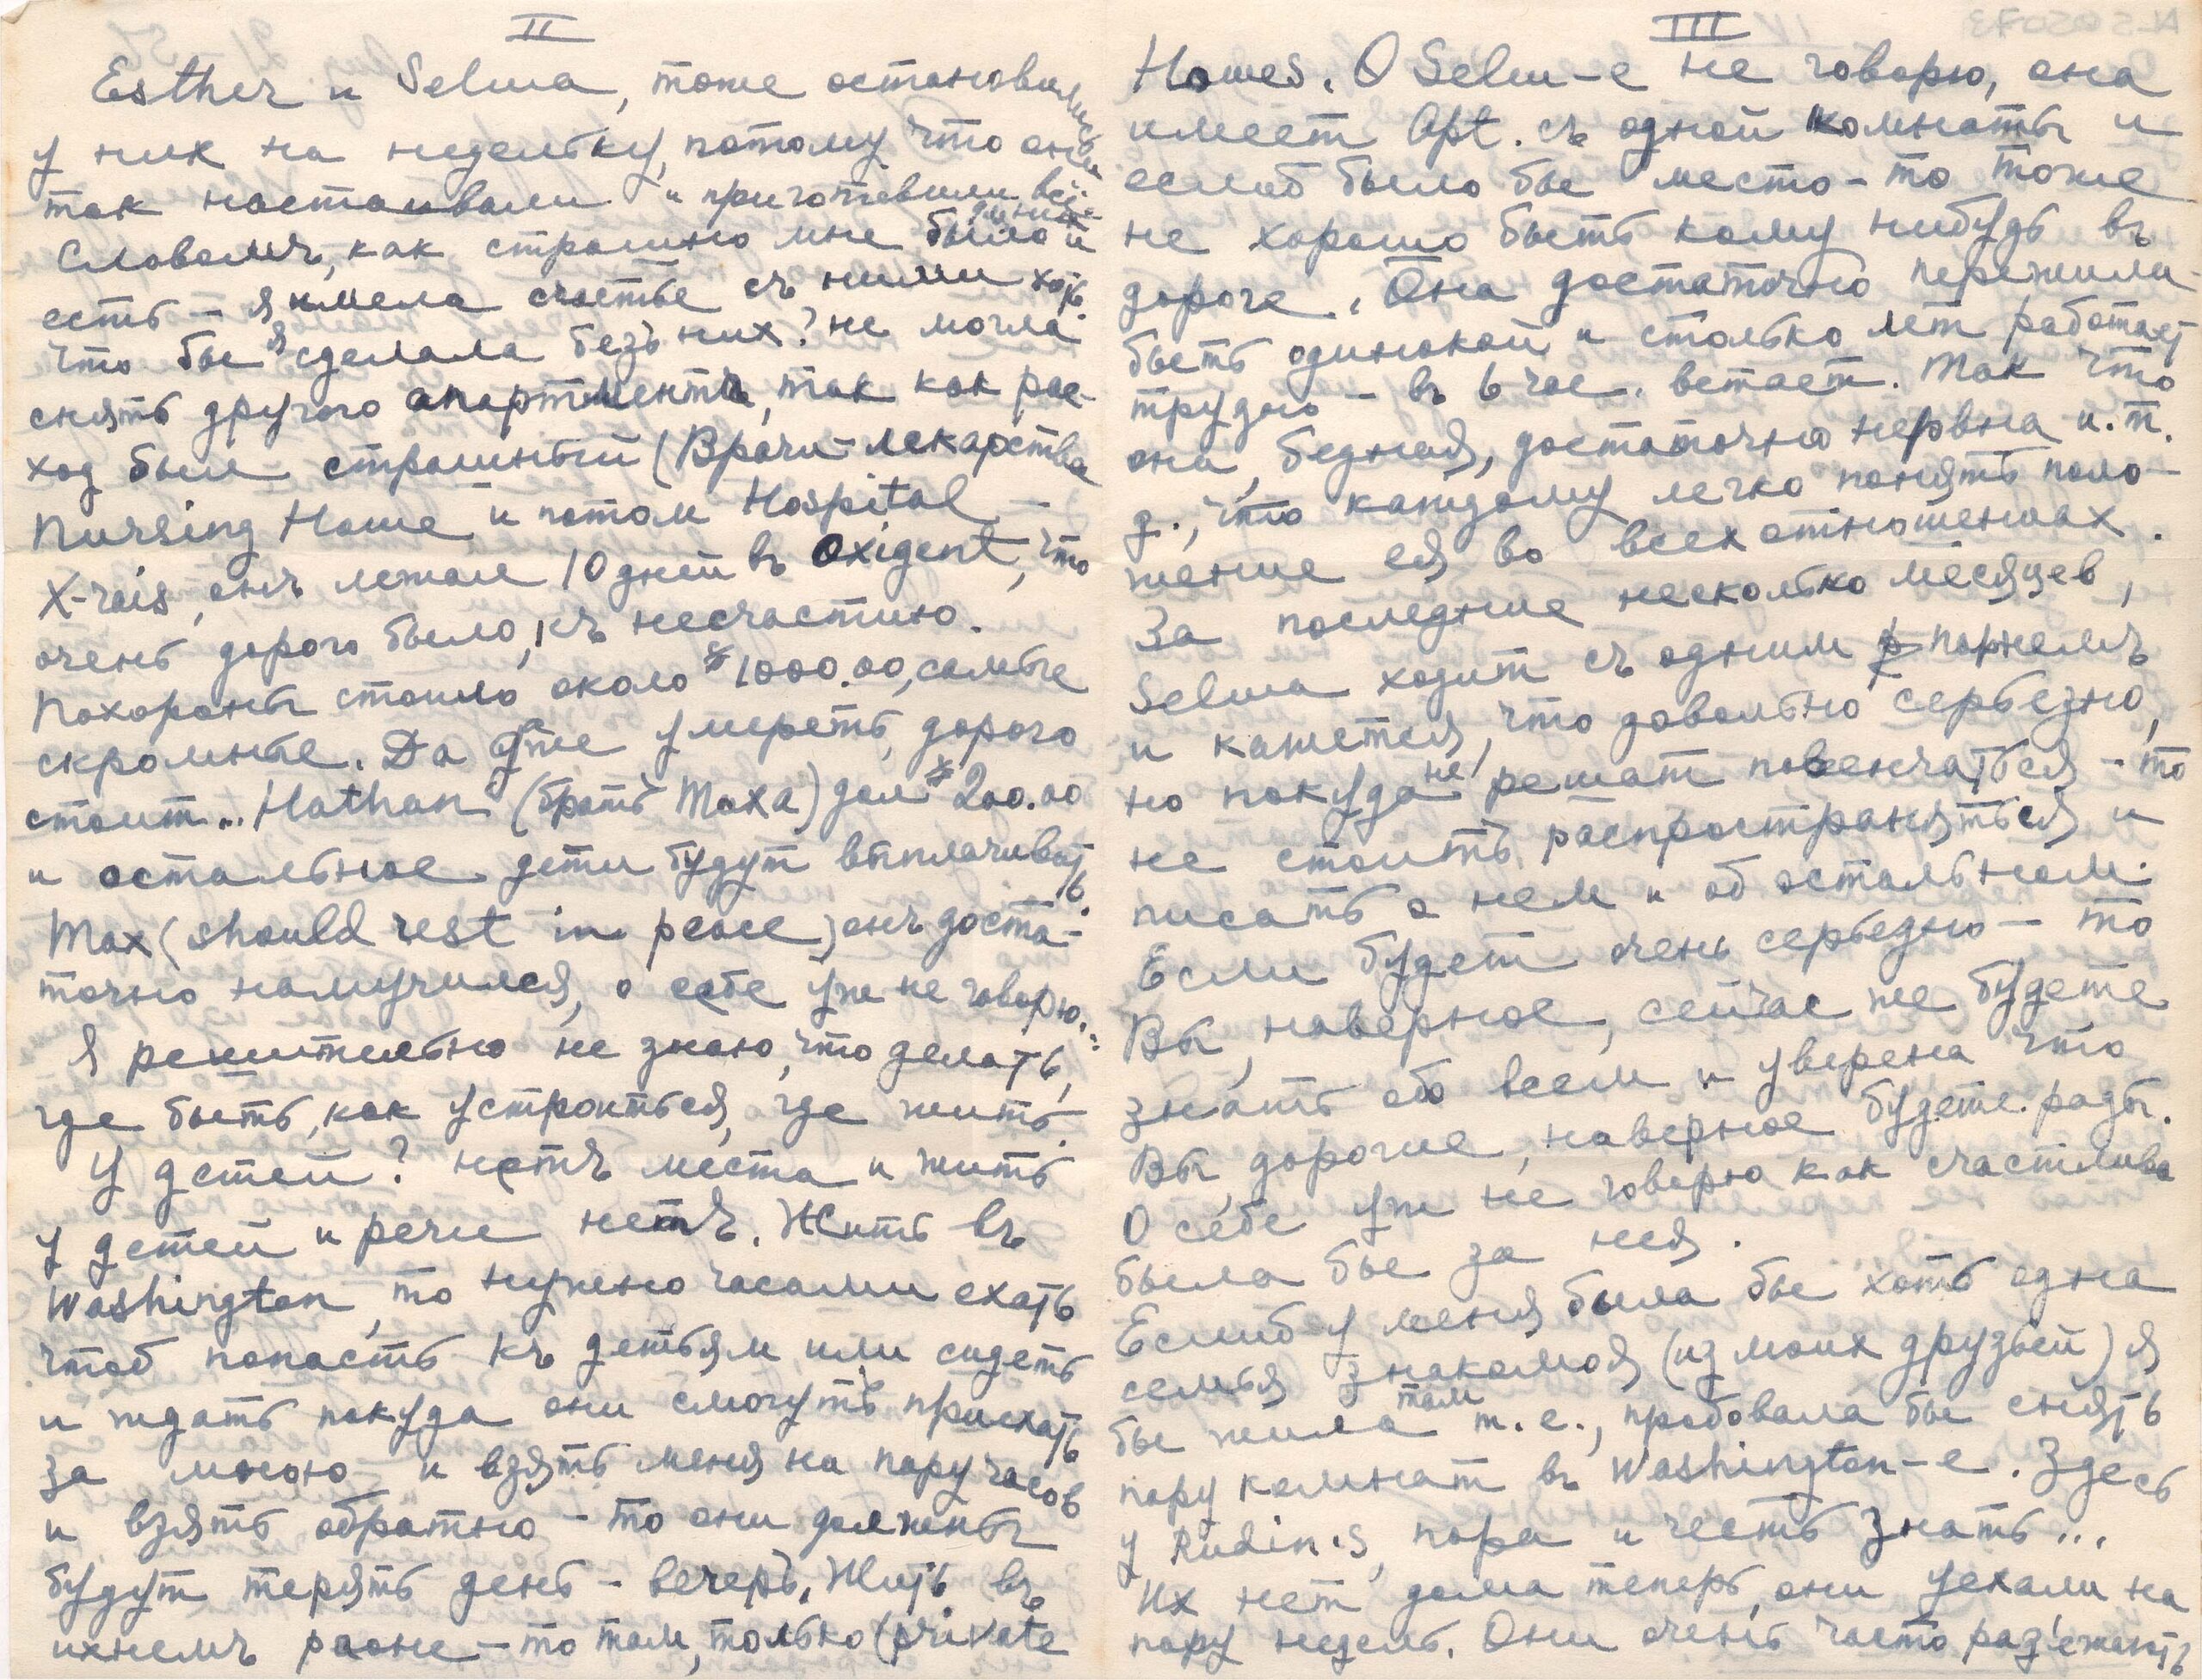 II
Esther и Selma, тоже остановились
у них на недельку, потому что они
так настаивали и приготовили всё.
Словомъ, как страшно мне было и
есть – я имела счастье съ ними хоть.
Что бы я сделала безъ них? не могла
снять другого апартмента, так как рас-
ход был страшный (Врачи – лекарства
Nursing Home и потом Hospital –
X-rais, онъ лежал 10 дней въ Oxigent, что
очень дорого было, къ несчастию.
Похороны стоило около $1000.00, самые
скромные. Да даже умереть, дорого
стоит... Nathan (братъ Макса) дал $200.00
и остальное дети будут выплачивать.
Max (should rest in peace) онъ доста-
точно намучился, о себе уж не говорю.
Я решительно не знаю, что делать,
где быть, как устроиться, где жить.
У детей? нетъ места и жить
у детей и речи нетъ. Жить въ
Washington, то нужно часами ехать
чтоб попасть къ детьям или сидеть
и ждать покуда они смогутъ приехать
за мною и взять меня на пару часов
и взять обратно – то они должны
будут терять день – вечеръ. Жить въ
ихнемъ раоне – то там, только (private
III
Homes. О Selm-е не говорю, она
имеет Apt. съ одной комнаты и
еслиб было бы место – то тоже
не хорошо быть кому нибудь въ
дороге. Она достаточно пережила
быть одинокой и столько лет работает
трудно – въ 6 час. встает. Так что
она, бедная, достаточно нервна и.т.
д., что каждому легко понять поло-
жение ея во всех отношениах.
За последние несколько месяцев,
Selma ходит съ одним парнемъ
и кажется, что довольно серьезно,
но покуда не решат повенчаться – то
не стоитъ распространяться и
писать о нем и об остальном.
Если будет очень серьезно – то
Вы, наверное, сейчас же будете
знать обо всем и уверена что
Вы, дорогие, наверное будете рады.
О себе уж не говорю как счастлива
была бы за нея.
Еслиб у меня была бы хоть одна
семья знакомоя (из моих друзьей) я
бы жила там т.е., пробовала бы снять
пару комнат въ Washington-е. Здесь
у Rudin's, пора и честь знать...
Их нет дома теперь, они уехали на
пару недель. Они очень часто раз'езжають